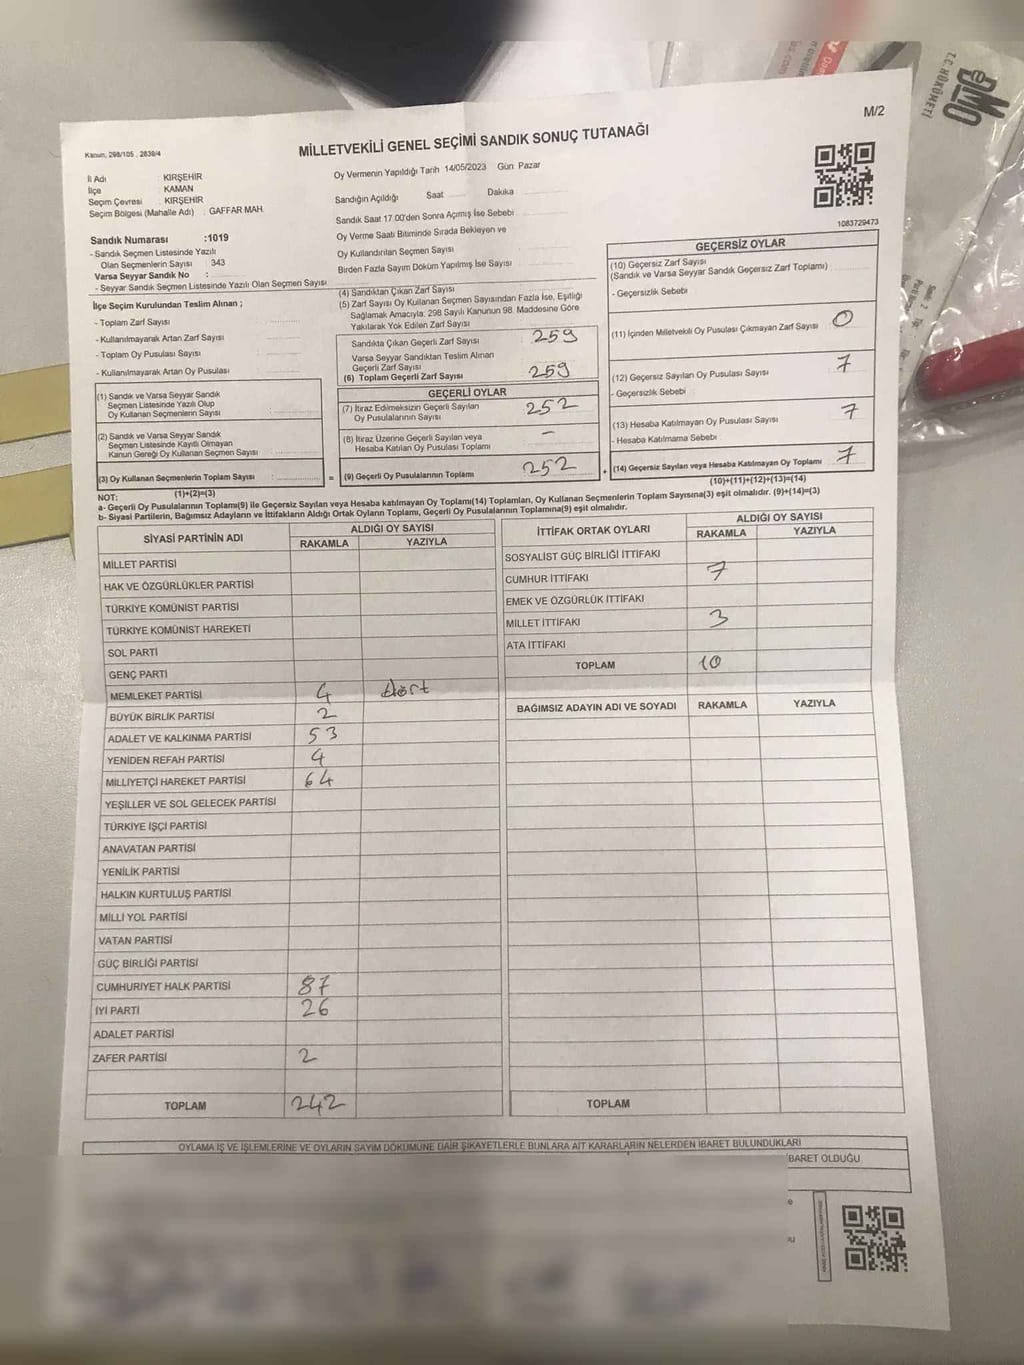 T.C HÜKÜMETİ
DMO
M/2
Kanun, 298/105 , 2839/4
MİLLETVEKİLİ GENEL SEÇİMİ SANDIK SONUÇ TUTANAĞI
İl Adı : KIRŞEHİR
İlçe : KAMAN
Seçim Çevresi : KIRŞEHİR
Seçim Bölgesi (Mahalle Adı) : GAFFAR MAH.
Oy Vermenin Yapıldığı Tarih 14/05/2023 Gün Pazar
Sandığın Açıldığı Saat Dakika
Sandık Saat 17.00'den Sonra Açımış İse Sebebi
Oy Verme Saati Bitiminde Sırada Bekleyen ve
Oy Kullandırılan Seçmen Sayısı
Birden Fazla Sayım Döküm Yapılmış İse Sayısı
1083729473
Sandık Numarası :1019
- Sandık Seçmen Listesinde Yazılı
Olan Seçmenlerin Sayısı : 343
Varsa Seyyar Sandık No :
- Seyyar Sandık Seçmen Listesinde Yazılı Olan Seçmen Sayısı
İlçe Seçim Kurulundan Teslim Alınan ;
- Toplam Zarf Sayısı
- Kullanılmayarak Artan Zarf Sayısı
- Toplam Oy Pusulası Sayısı
- Kullanılmayarak Artan Oy Pusulası
(1) Sandık ve Varsa Seyyar Sandık
Seçmen Listesinde Yazılı Olup
Oy Kullanan Seçmenlerin Sayısı
(2) Sandık ve Varsa Seyyar Sandık
Seçmen Listesinde Kayıtlı Olmayan
Kanun Gereği Oy Kullanan Seçmen Sayısı
(3) Oy Kullanan Seçmenlerin Toplam Sayısı =
(1)+(2)=(3)
(4) Sandıktan Çıkan Zarf Sayısı
(5) Zarf Sayısı Oy Kullanan Seçmen Sayısından Fazla İse, Eşitliği
Sağlamak Amacıyla, 298 Sayılı Kanunun 98. Maddesine Göre
Yakılarak Yok Edilen Zarf Sayısı
Sandıkta Çıkan Geçerli Zarf Sayısı 259
Varsa Seyyar Sandıktan Teslim Alınan
Geçerli Zarf Sayısı
(6) Toplam Geçerli Zarf Sayısı 259
GEÇERLİ OYLAR
(7) İtiraz Edilmeksizin Geçerli Sayılan
Oy Pusulalarının Sayısı 252
(8) İtiraz Üzerine Geçerli Sayılan veya
Hesaba Katılan Oy Pusulası Toplamı -
(9) Geçerli Oy Pusulalarının Toplamı 252 +
GEÇERSİZ OYLAR
(10) Geçersiz Zarf Sayısı
(Sandık ve Varsa Seyyar Sandık Geçersiz Zarf Toplamı)
- Geçersizlik Sebebi
(11) İçinden Milletvekili Oy Pusulası Çıkmayan Zarf Sayısı 0
(12) Geçersiz Sayılan Oy Pusulası Sayısı 7
- Geçersizlik Sebebi
(13) Hesaba Katılmayan Oy Pusulası Sayısı 7
- Hesaba Katılmama Sebebi
(14) Geçersiz Sayılan veya Hesaba Katılmayan Oy Toplamı 7
(10)+(11)+(12)+(13)=(14)
NOT:
a- Geçerli Oy Pusulalarının Toplamı(9) ile Geçersiz Sayılan veya Hesaba katılmayan Oy Toplamı(14) Toplamları, Oy Kullanan Seçmenlerin Toplam Sayısına(3) eşit olmalıdır. (9)+(14)=(3)
b- Siyasi Partilerin, Bağımsız Adayların ve İttifakların Aldığı Ortak Oyların Toplamı, Geçerli Oy Pusulalarının Toplamına(9) eşit olmalıdır.
SİYASİ PARTİNİN ADI ALDIĞI OY SAYISI
RAKAMLA YAZIYLA
MİLLET PARTİSİ
HAK VE ÖZGÜRLÜKLER PARTİSİ
TÜRKİYE KOMÜNİST PARTİSİ
TÜRKİYE KOMÜNİST HAREKETİ
SOL PARTİ
GENÇ PARTİ
MEMLEKET PARTİSİ 4 dört
BÜYÜK BİRLİK PARTİSİ 2
ADALET VE KALKINMA PARTİSİ 53
YENİDEN REFAH PARTİSİ 4
MİLLİYETÇİ HAREKET PARTİSİ 64
YEŞİLLER VE SOL GELECEK PARTİSİ
TÜRKİYE İŞÇİ PARTİSİ
ANAVATAN PARTİSİ
YENİLİK PARTİSİ
HALKIN KURTULUŞ PARTİSİ
MİLLİ YOL PARTİSİ
VATAN PARTİSİ
GÜÇ BİRLİĞİ PARTİSİ
CUMHURİYET HALK PARTİSİ 87
İYİ PARTİ 26
ADALET PARTİSİ
ZAFER PARTİSİ 2
TOPLAM 242
İTTİFAK ORTAK OYLARI ALDIĞI OY SAYISI
RAKAMLA YAZIYLA
SOSYALİST GÜÇ BİRLİĞİ İTTİFAKI
CUMHUR İTTİFAKI 7
EMEK VE ÖZGÜRLÜK İTTİFAKI
MİLLET İTTİFAKI 3
ATA İTTİFAKI
TOPLAM 10
BAĞIMSIZ ADAYIN ADI VE SOYADI RAKAMLA YAZIYLA
TOPLAM
OYLAMA İŞ VE İŞLEMLERİNE VE OYLARIN SAYIM DÖKÜMÜNE DAİR ŞİKAYETLERLE BUNLARA AİT KARARLARIN NELERDEN İBARET BULUNDUKLARI
İBARET OLDUĞU